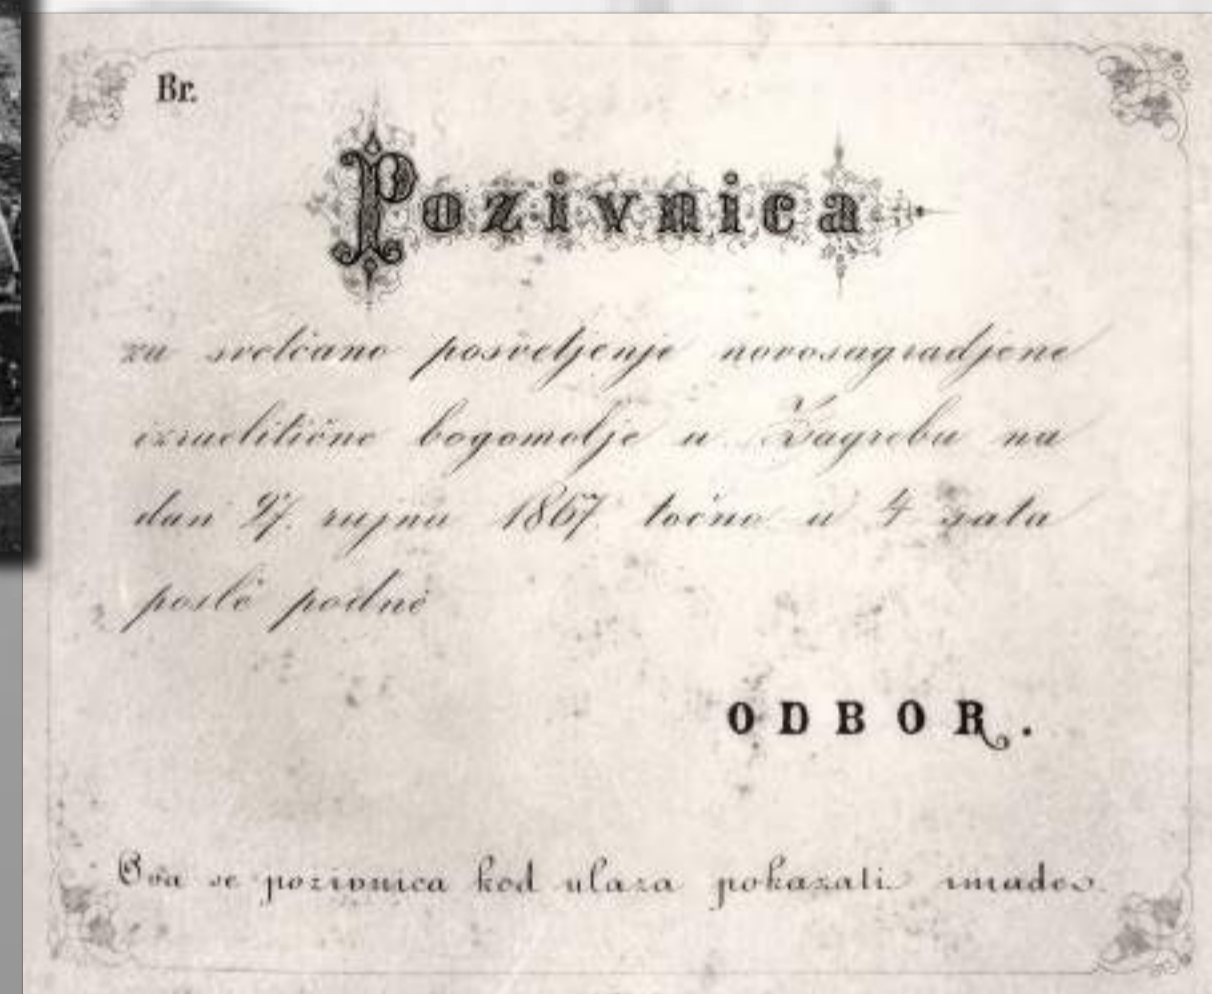 Br.
Pozivnica
za svelčano posvetjenje novosagradjene
izraelitične bogomolje u Zagrebu na
dan 27. rujna 1867 točno u 4 sata
poslě podne
ODBOR.
Ova se pozivnica kod ulaza pokazati imade